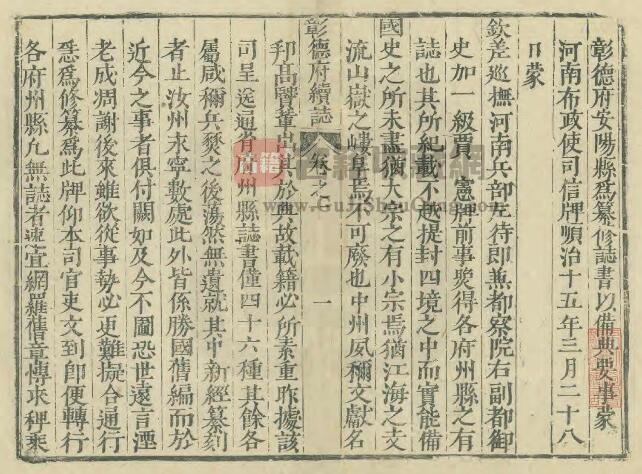 彰德府安陽縣爲纂修誌書以備典要事蒙
河南布政使司信牌順治十五年三月二十八
日蒙
欽差巡撫河南兵部左侍郎兼都察院右副都御
史加一級賈 憲牌前事煚得各府州縣之有
誌也其所紀載不越提封四境之中而實能備
國史之所未盡猶大宗之有小宗焉猶江海之支
流山嶽之嶁阜焉不可廢也中州夙稱文獻名
彰德府續誌 卷之 一
邦髙賢輩出其於典故載籍必所素重昨據該
司呈送通省府州縣誌書僅四十六種其餘各
屬咸稱兵燹之後蕩然無遺就其中新經纂刻
者止汝州永寧數處此外皆係勝國舊編而於
近今之事者俱付闕如及今不圖恐世遠言湮
老成凋謝後來雖欲從事勢必更難擬合通行
恁爲修纂爲此牌仰本司官吏文到即便轉行
各府州縣凢無誌者速宜網羅舊章愽求稗乘
古籍
www.GuJiShuGe.com